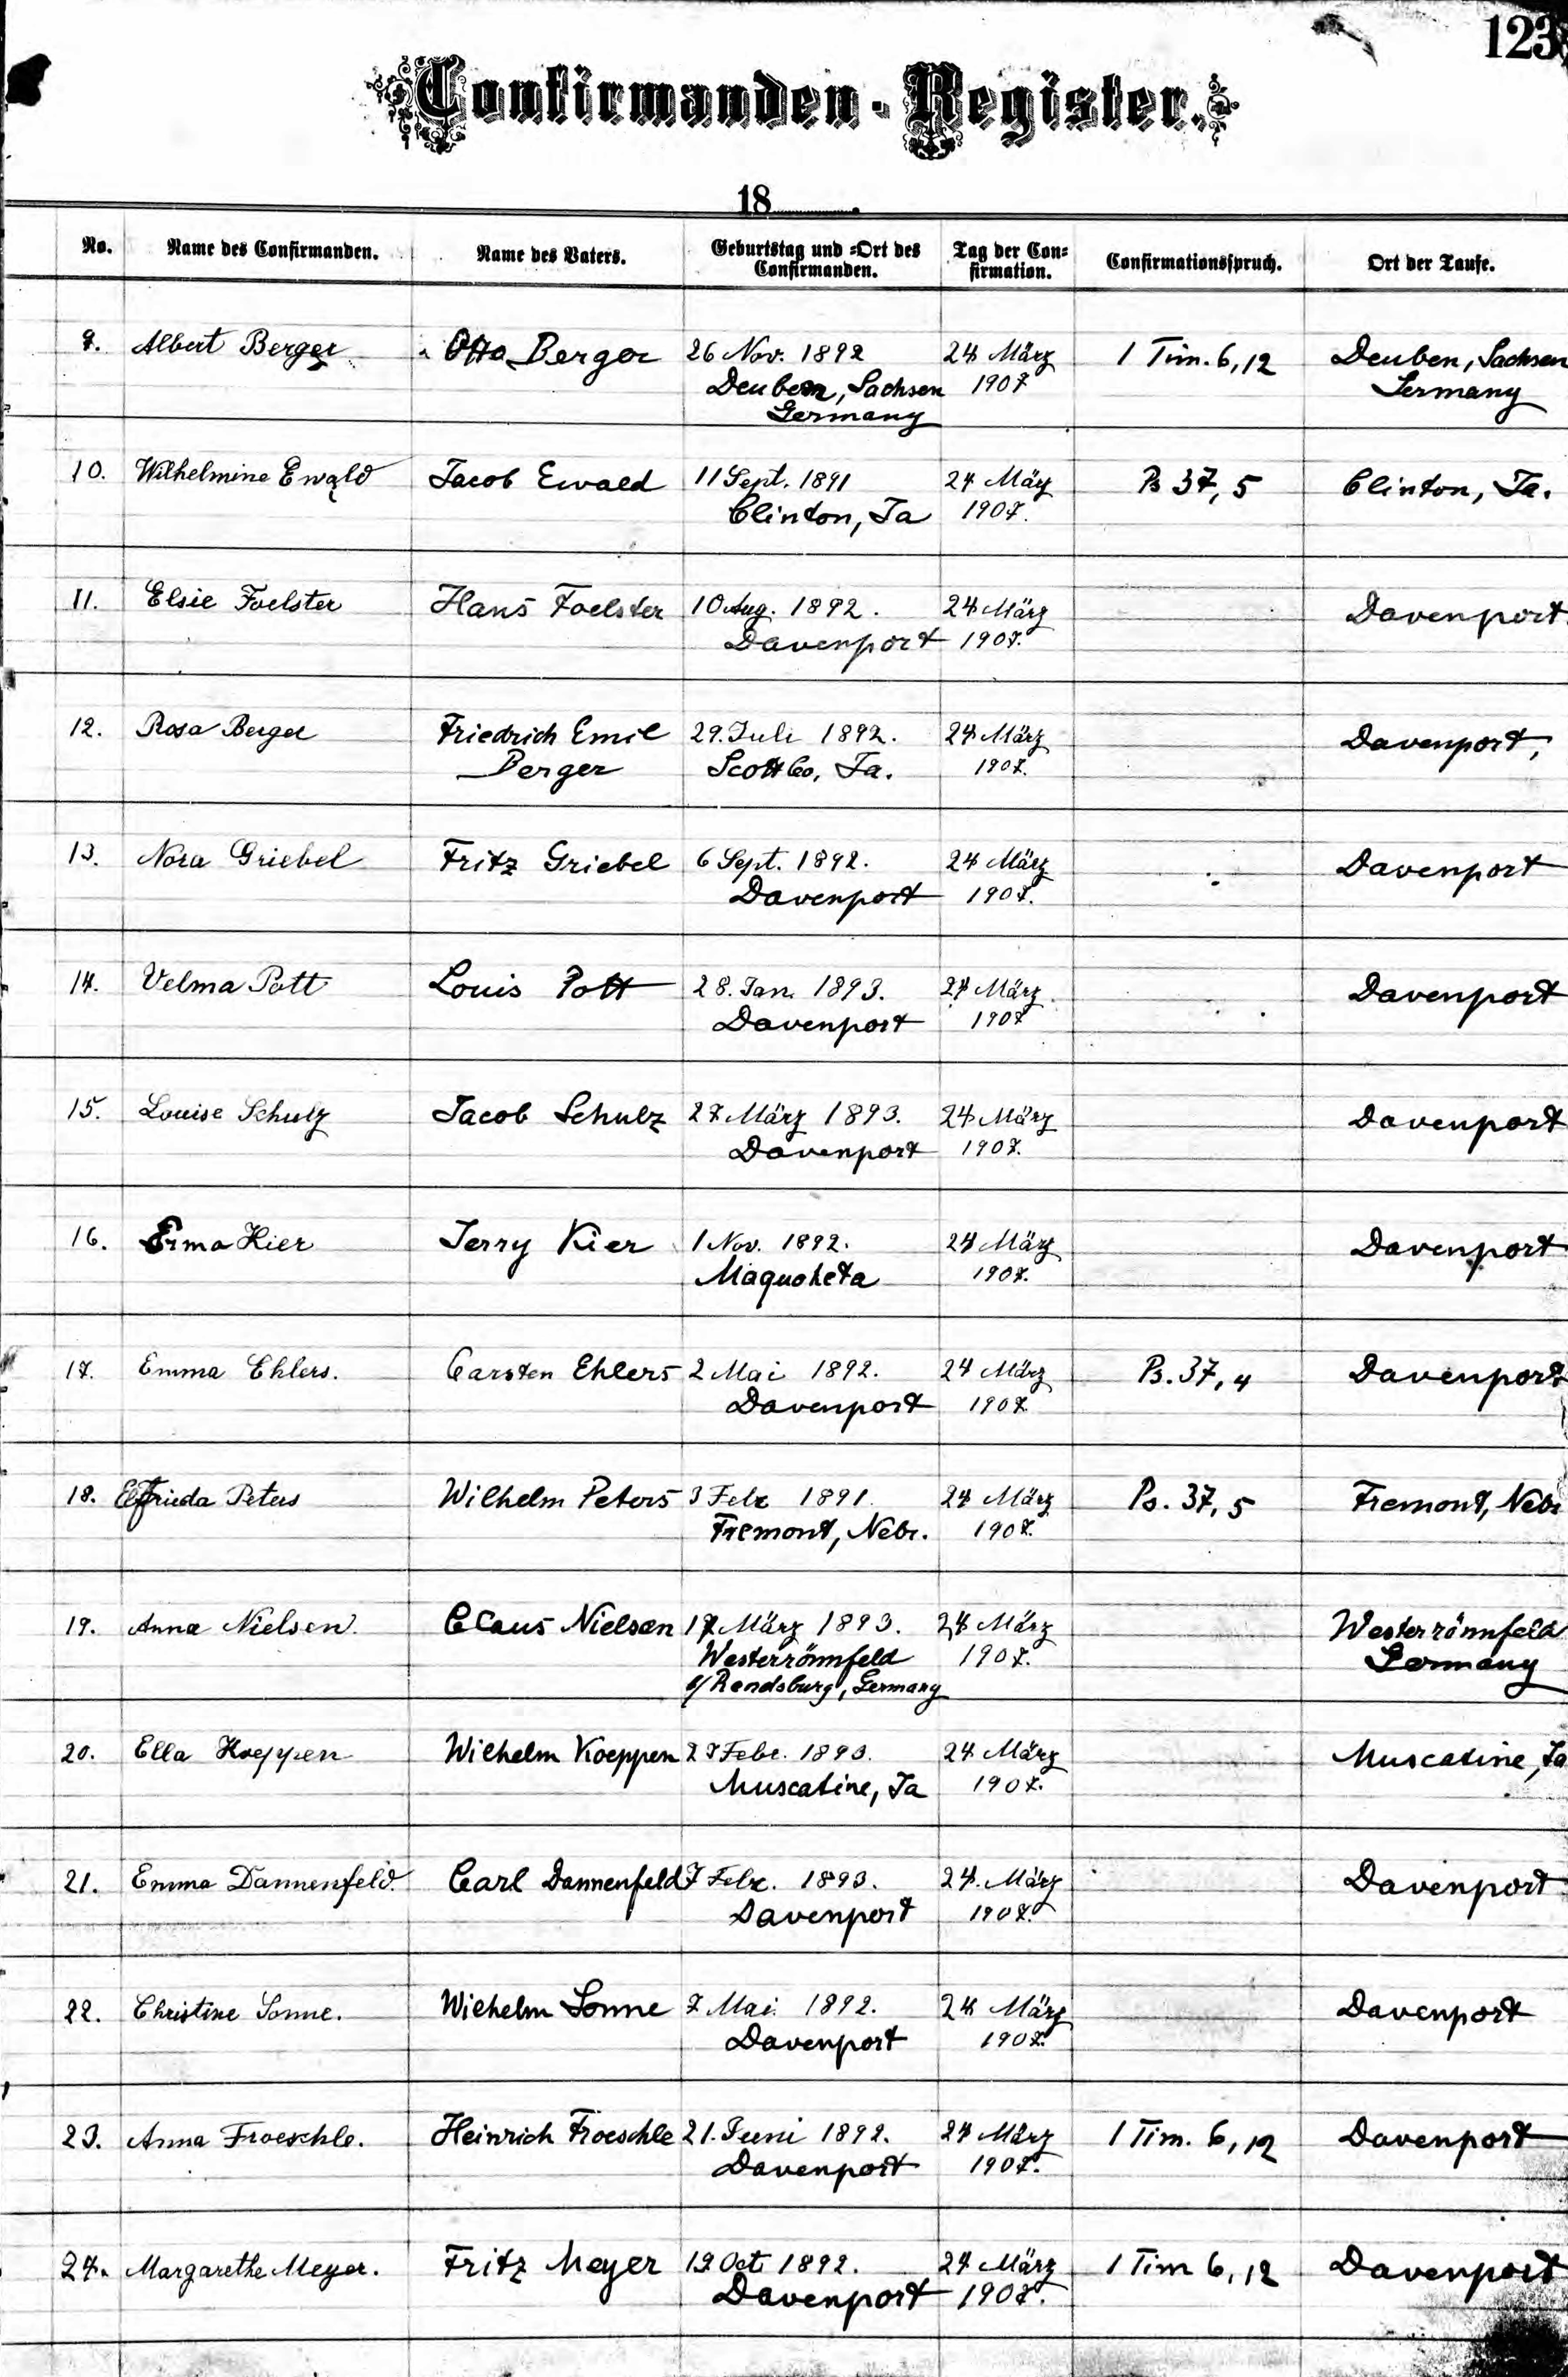 123
Confirmanden-Register.
18
No. Name des Confirmanden. Name des Vaters. Geburtstag und =Ort des Confirmanden. Tag der Con=firmation. Confirmationsspruch. Ort der Taufe.
9. Albert Berger Otto Berger 26 Nov. 1892 24 März 1 Tim. 6, 12 Deuben, Sachsen
Deuben, Sachsen 1907 Germany
Germany
10. Wilhelmine Ewald Jacob Ewald 11 Sept. 1891 24 März Ps 37, 5 Clinton, Ia.
Clinton, Ia 1907.
11. Elsie Foelster Hans Foelster 10 Aug. 1892. 24 März Davenport
Davenport 1907.
12. Rosa Berger Friedrich Emil 29. Juli 1892. 24 März Davenport,
Berger Scott Co, Ia. 1907.
13. Nora Griebel Fritz Griebel 6 Sept. 1892. 24 März Davenport
Davenport 1907.
14. Velma Pott Louis Pott 28. Jan. 1893. 24 März Davenport
Davenport 1907
15. Louise Schulz Jacob Schulz 27 März 1893. 24 März Davenport
Davenport 1907.
16. Erma Kier Jerry Kier 1 Nov. 1892. 24 März Davenport
Maquoketa 1907.
17. Emma Ehlers. Carsten Ehlers 2 Mai 1892. 24 März Ps. 37, 4 Davenport
Davenport 1907.
18. Elfrieda Peters Wilhelm Peters 3 Febr 1891. 24 März Ps. 37, 5 Fremont, Nebr
Fremont, Nebr. 1907.
19. Anna Nielsen. Claus Nielsen 17 März 1893. 24 März Westerrönnfeld
Westerrönnfeld 1907. Germany
b/Rendsburg, Germany
20. Ella Koeppen Wilhelm Koeppen Febr. 1893. 24 März Muscatine, Ia
Muscatine, Ia 1907.
21. Emma Dannenfeld. Carl Dannenfeld 7 Febr. 1893. 24. März Davenport
Davenport 1907.
22. Christine Sonne. Wilhelm Sonne 7 Mai 1892. 24 März Davenport
Davenport 1907.
23. Anna Froeschle. Heinrich Froeschle 21. Juni 1892. 24 März 1 Tim. 6, 12 Davenport
Davenport 1907.
24. Margarethe Meyer. Fritz Meyer Oct 1892. 24 März 1 Tim 6, 12 Davenport
Davenport 1907.